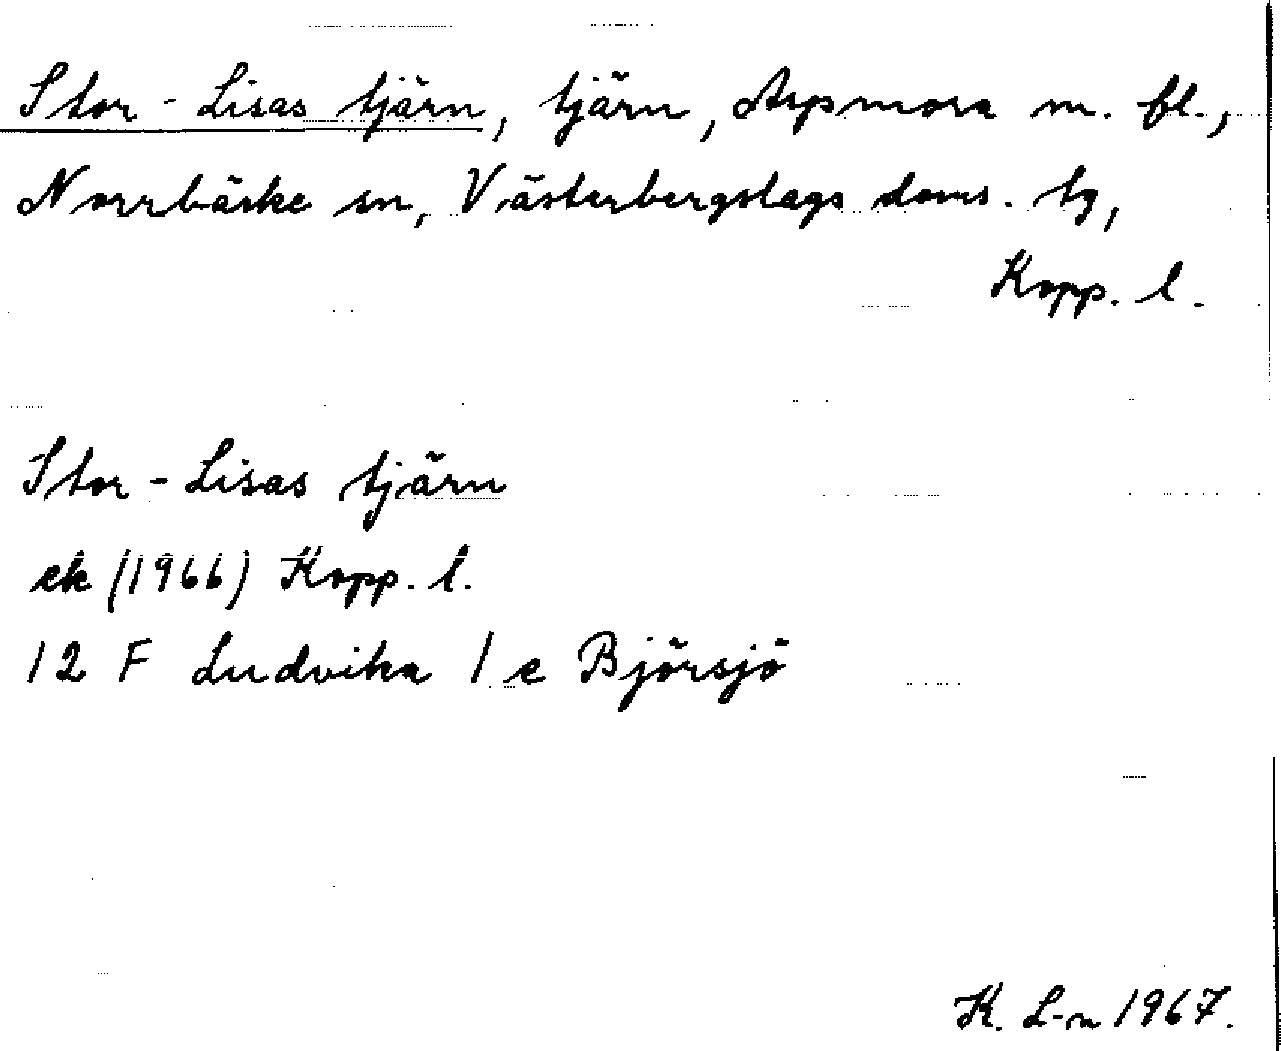 Stor-Lisas tjärn, tjärn, Aspmora m. fl.,
Norrbärke sn, Västerbergslags doms. tg,
Kopp. l.
Stor-Lisas tjärn
ek (1966) Kopp. l.
12 F Ludvika 1 e Björsjö
K. L-n 1967.